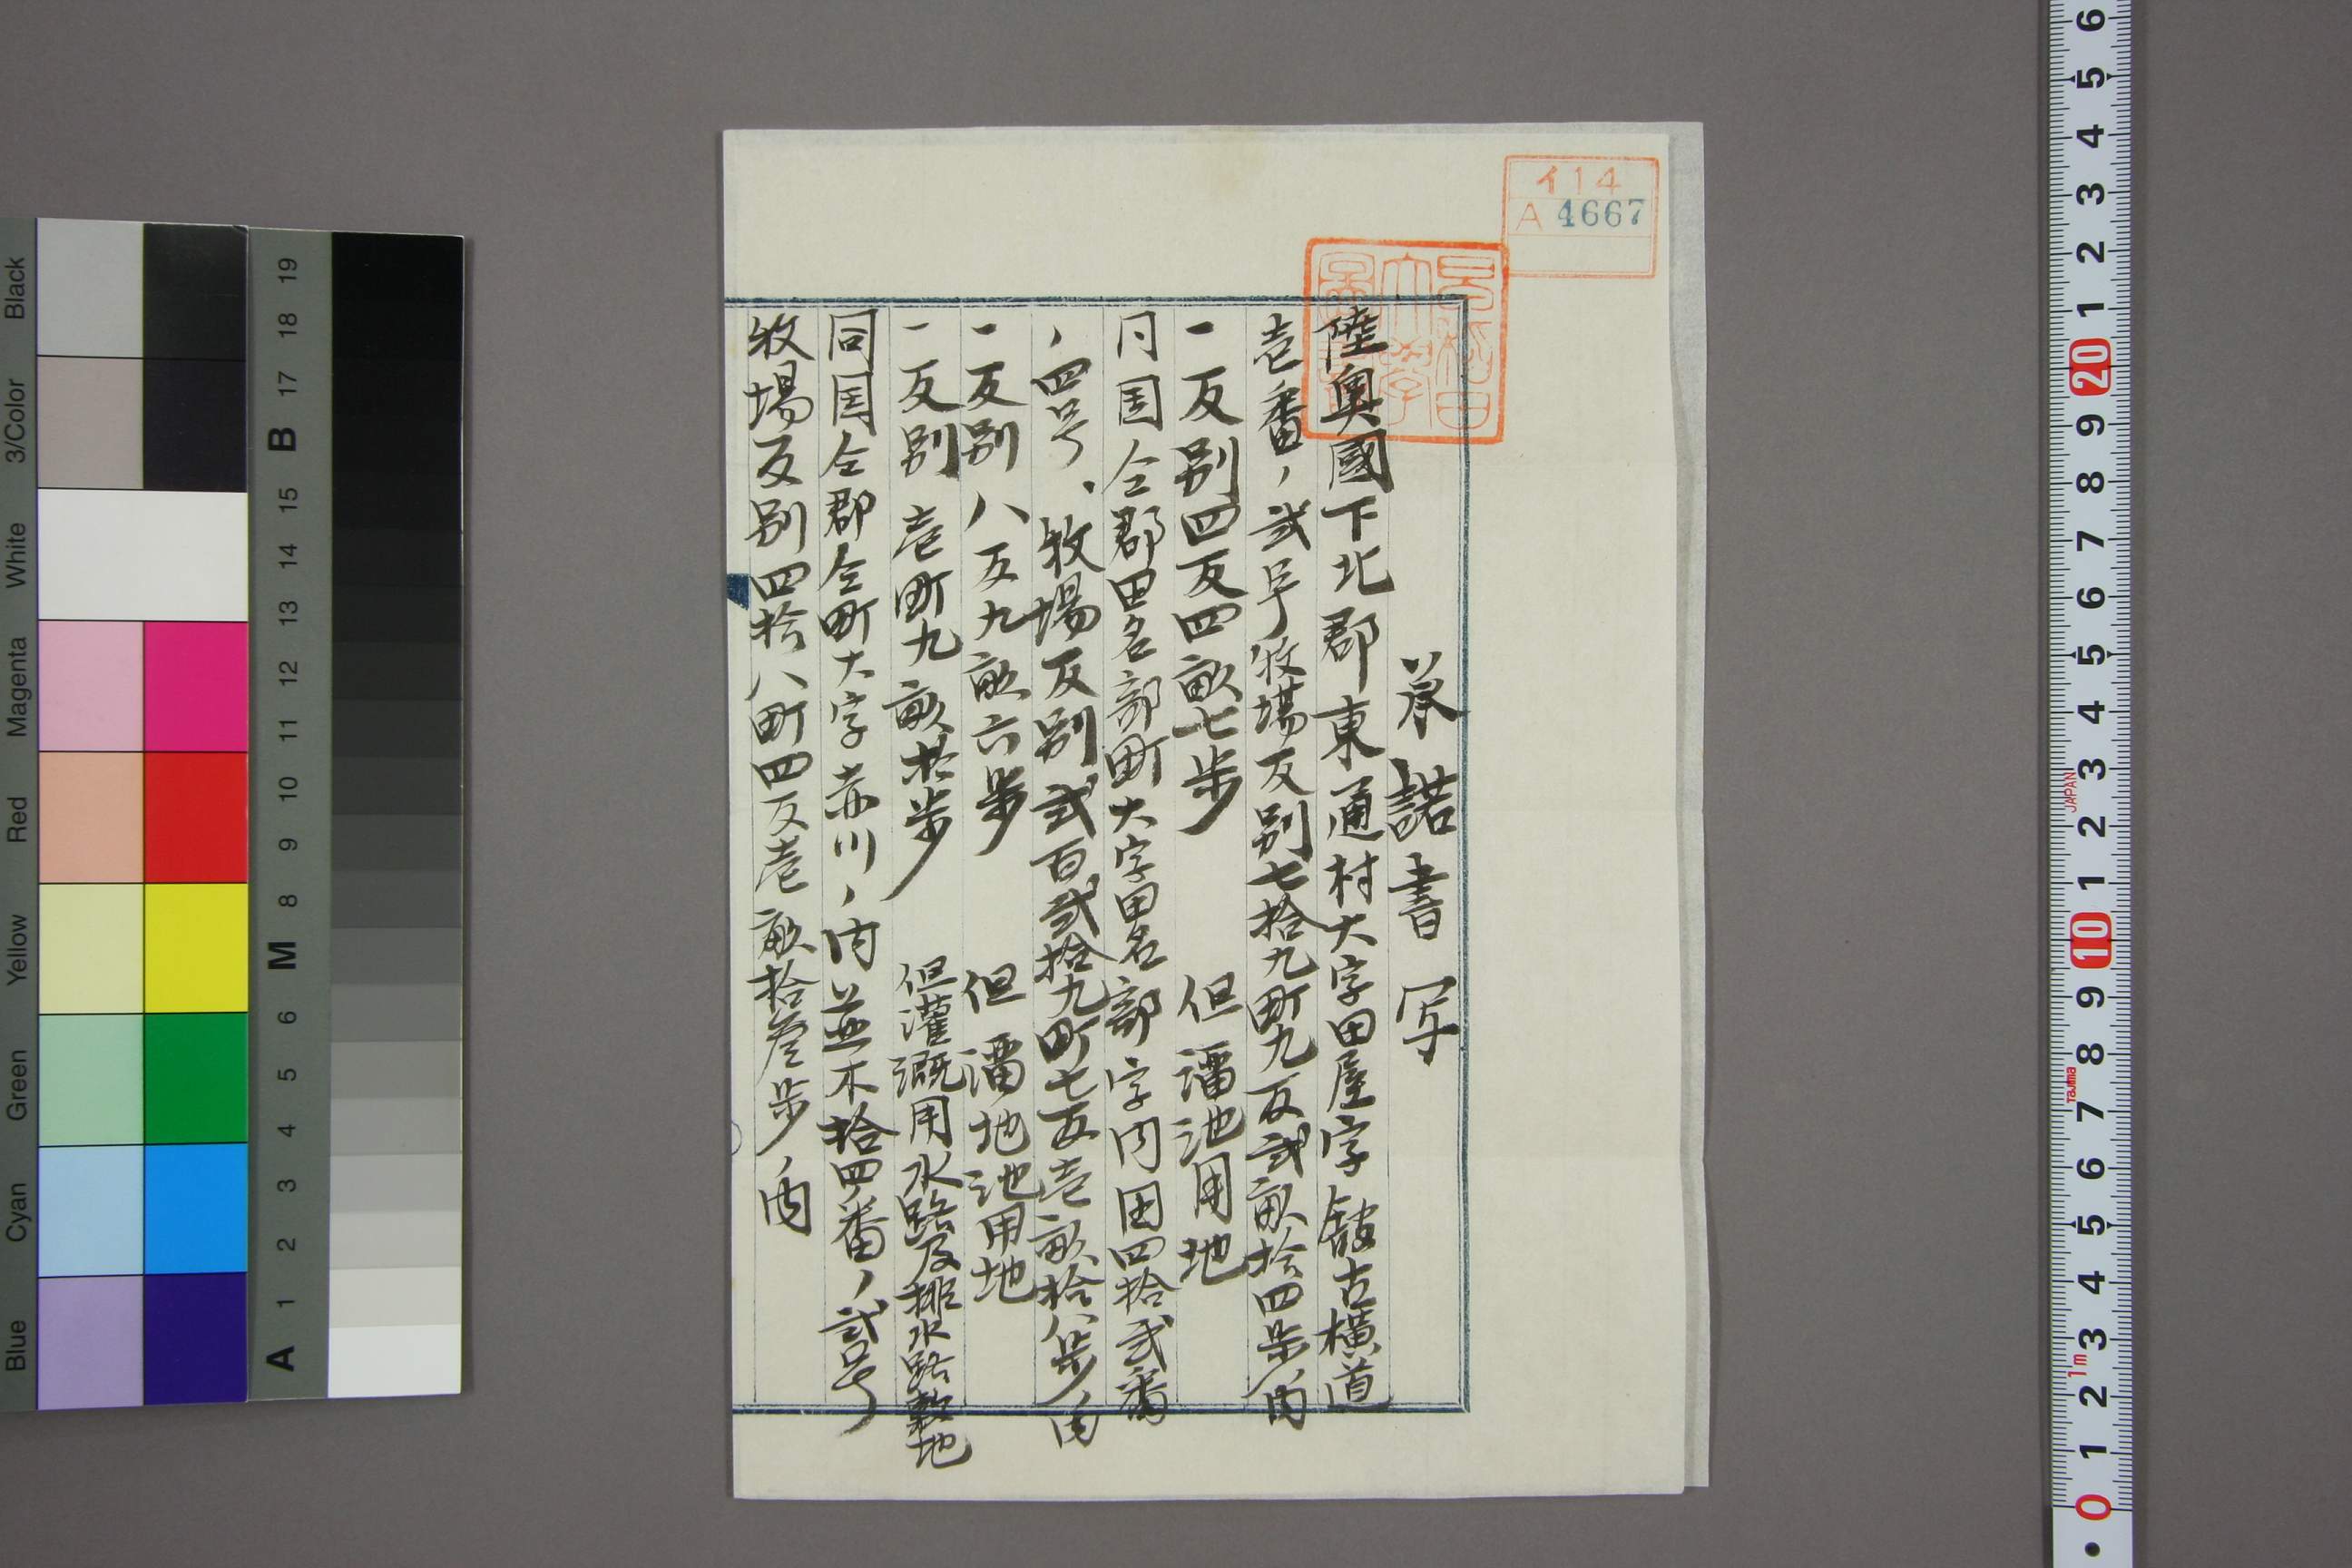 承諾書写
陸奥國下北郡東通村大字田屋字館古横道
壱番ノ弐号牧場反別七拾九町九反弐畝拾四歩ノ内
一反別四反四畝七歩 但溜池用地
同国仝郡田名部町大字田名部字内田四拾弐番
ノ四号、牧場反別弐百弐拾九町七反壱畝拾八歩ノ内
一反別八反九畝六歩 但溜池用地
一反別壱町九畝拾歩 但灌漑用水路及排水路敷地
同国仝郡仝町大字赤川ノ内並木拾四番ノ弐号
牧場反別四拾八町四反壱畝拾参歩ノ内
イ14
A 4667
Black
3/Color
White
Magenta
Red
Yellow
Green
Cyan
Blue
19
18
17
B
15
14
13
12
11
10
9
8
M
6
5
4
3
2
1
A
6
5
4
3
2
1
20
9
8
7
6
5
4
3
2
1
10
9
8
7
6
5
4
3
2
1
0
JAPAN
Tajima
1m